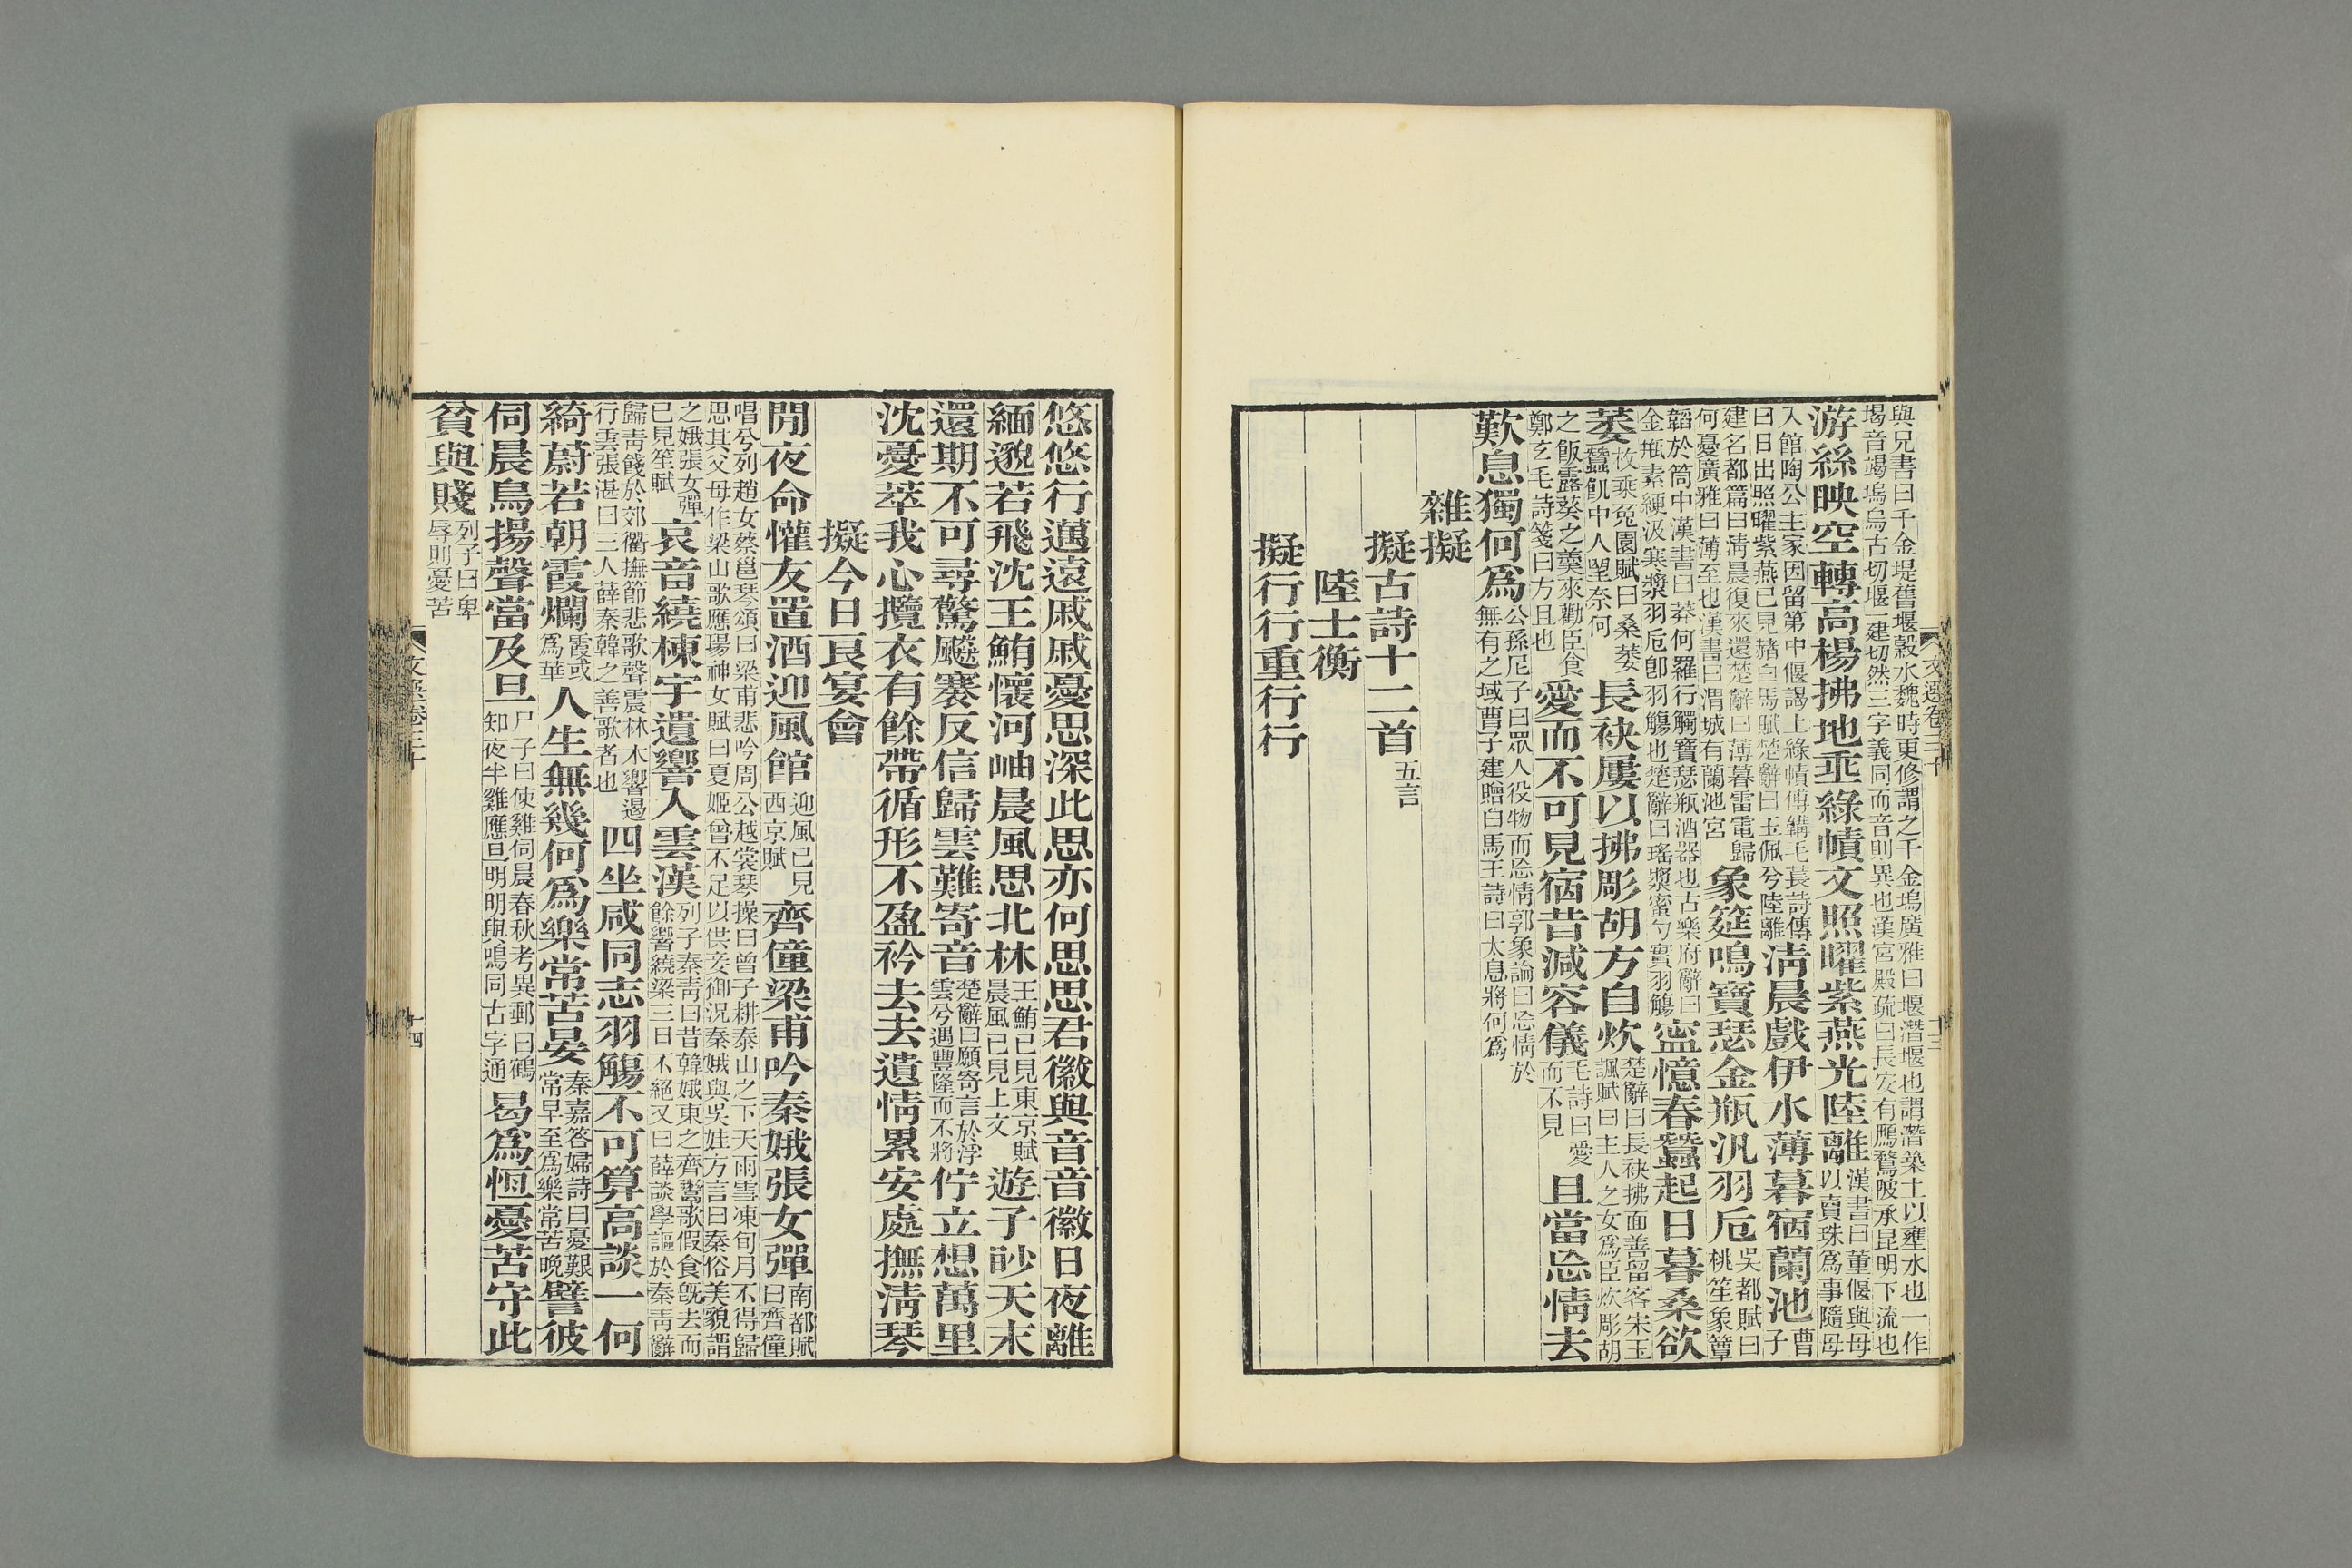 與兄書曰千金堤舊堰穀水魏時更修謂之千金塢廣雅曰堰潛堰也謂潛築土以壅水也一作
堨音竭塢烏古切堰一建切然三字義同而音則異也漢宮殿疏曰長安有鴈鶩陂承昆明下流也
游絲映空轉高楊拂地垂綠幘文照曜紫燕光陸離漢書曰董偃與母以賣珠爲事隨母
入館陶公主家因留第中偃謁上綠幘傅韝毛萇詩傳曰日出照曜紫燕已見赭白馬賦楚辭曰玉佩兮陸離清晨戲伊水薄暮宿蘭池曹子
建名都篇曰清晨復來還楚辭曰薄暮雷電歸何憂廣雅曰薄至也漢書曰渭城有蘭池宮象筵鳴寶瑟金瓶汎羽巵吳都賦曰桃笙象簟
韜於筒中漢書曰莽何羅行觸寶瑟瓶酒器也古樂府辭曰金瓶素綆汲寒漿羽巵卽羽觴也楚辭曰瑤漿蜜勺實羽觴寍憶春蠶起日暮桑欲
萎枚乘兔園賦曰桑萎蠶飢中人望奈何長袂屢以拂彫胡方自炊楚辭曰長袂拂面善留客宋玉諷賦曰主人之女爲臣炊彫胡
之飯露葵之羹來勸臣食鄭玄毛詩箋曰方且也愛而不可見宿昔減容儀毛詩曰愛而不見且當忘情去
歎息獨何爲公孫尼子曰眾人役物而忘情郭象論曰忘情於無有之域曹子建贈白馬王詩曰太息將何爲
雜擬
擬古詩十二首五言
陸士衡
擬行行重行行
文選卷三十 十三
悠悠行邁遠戚戚憂思深此思亦何思思君徽與音音徽日夜離
緬邈若飛沈王鮪懷河岫晨風思北林王鮪已見東京賦晨風已見上文遊子眇天末
還期不可尋驚飈褰反信歸雲難寄音楚辭曰願寄言於浮雲兮遇豐隆而不將佇立想萬里
沈憂萃我心攬衣有餘帶循形不盈衿去去遺情累安處撫清琴
擬今日良宴會
閒夜命懽友置酒迎風館迎風已見西京賦齊僮梁甫吟秦娥張女彈南都賦曰齊僮
唱兮列趙女蔡邕琴頌曰梁甫悲吟周公越裳琴操曰曾子耕泰山之下天雨雪凍旬月不得歸
思其父母作梁山歌應瑒神女賦曰夏姬曾不足以供妾御況秦娥與吳娃方言曰秦俗美貌謂
之娥張女彈已見笙賦哀音繞棟宇遺響入雲漢列子秦青曰昔韓娥東之齊鬻歌假食旣去而餘響繞梁三日不絕又曰薛談學謳於秦青辭
歸青餞於郊衢撫節悲歌聲震林木響遏行雲張湛曰三人薛秦韓之善歌者也四坐咸同志羽觴不可算高談一何
綺蔚若朝霞爛霞或爲華人生無幾何爲樂常苦晏秦嘉答婦詩曰憂艱常早至爲樂常苦晚譬彼
伺晨鳥揚聲當及旦尸子曰使雞伺晨春秋考異郵曰鶴知夜半雞應旦明明與鳴同古字通曷爲恒憂苦守此
貧與賤列子曰卑辱則憂苦
文選卷三十 十四